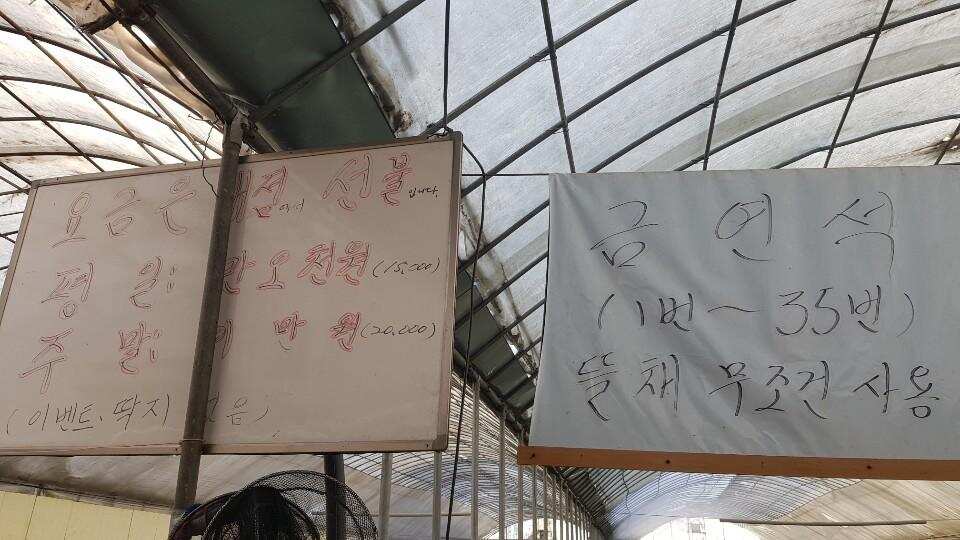 요금은 매점에서 선불입니다.
평 일: 만오천원(15,000)
주 말: 이만원(20,000)
(이벤트.딱지 없음)
금 연 석
(1번~35번)
뜰채 무조건 사용